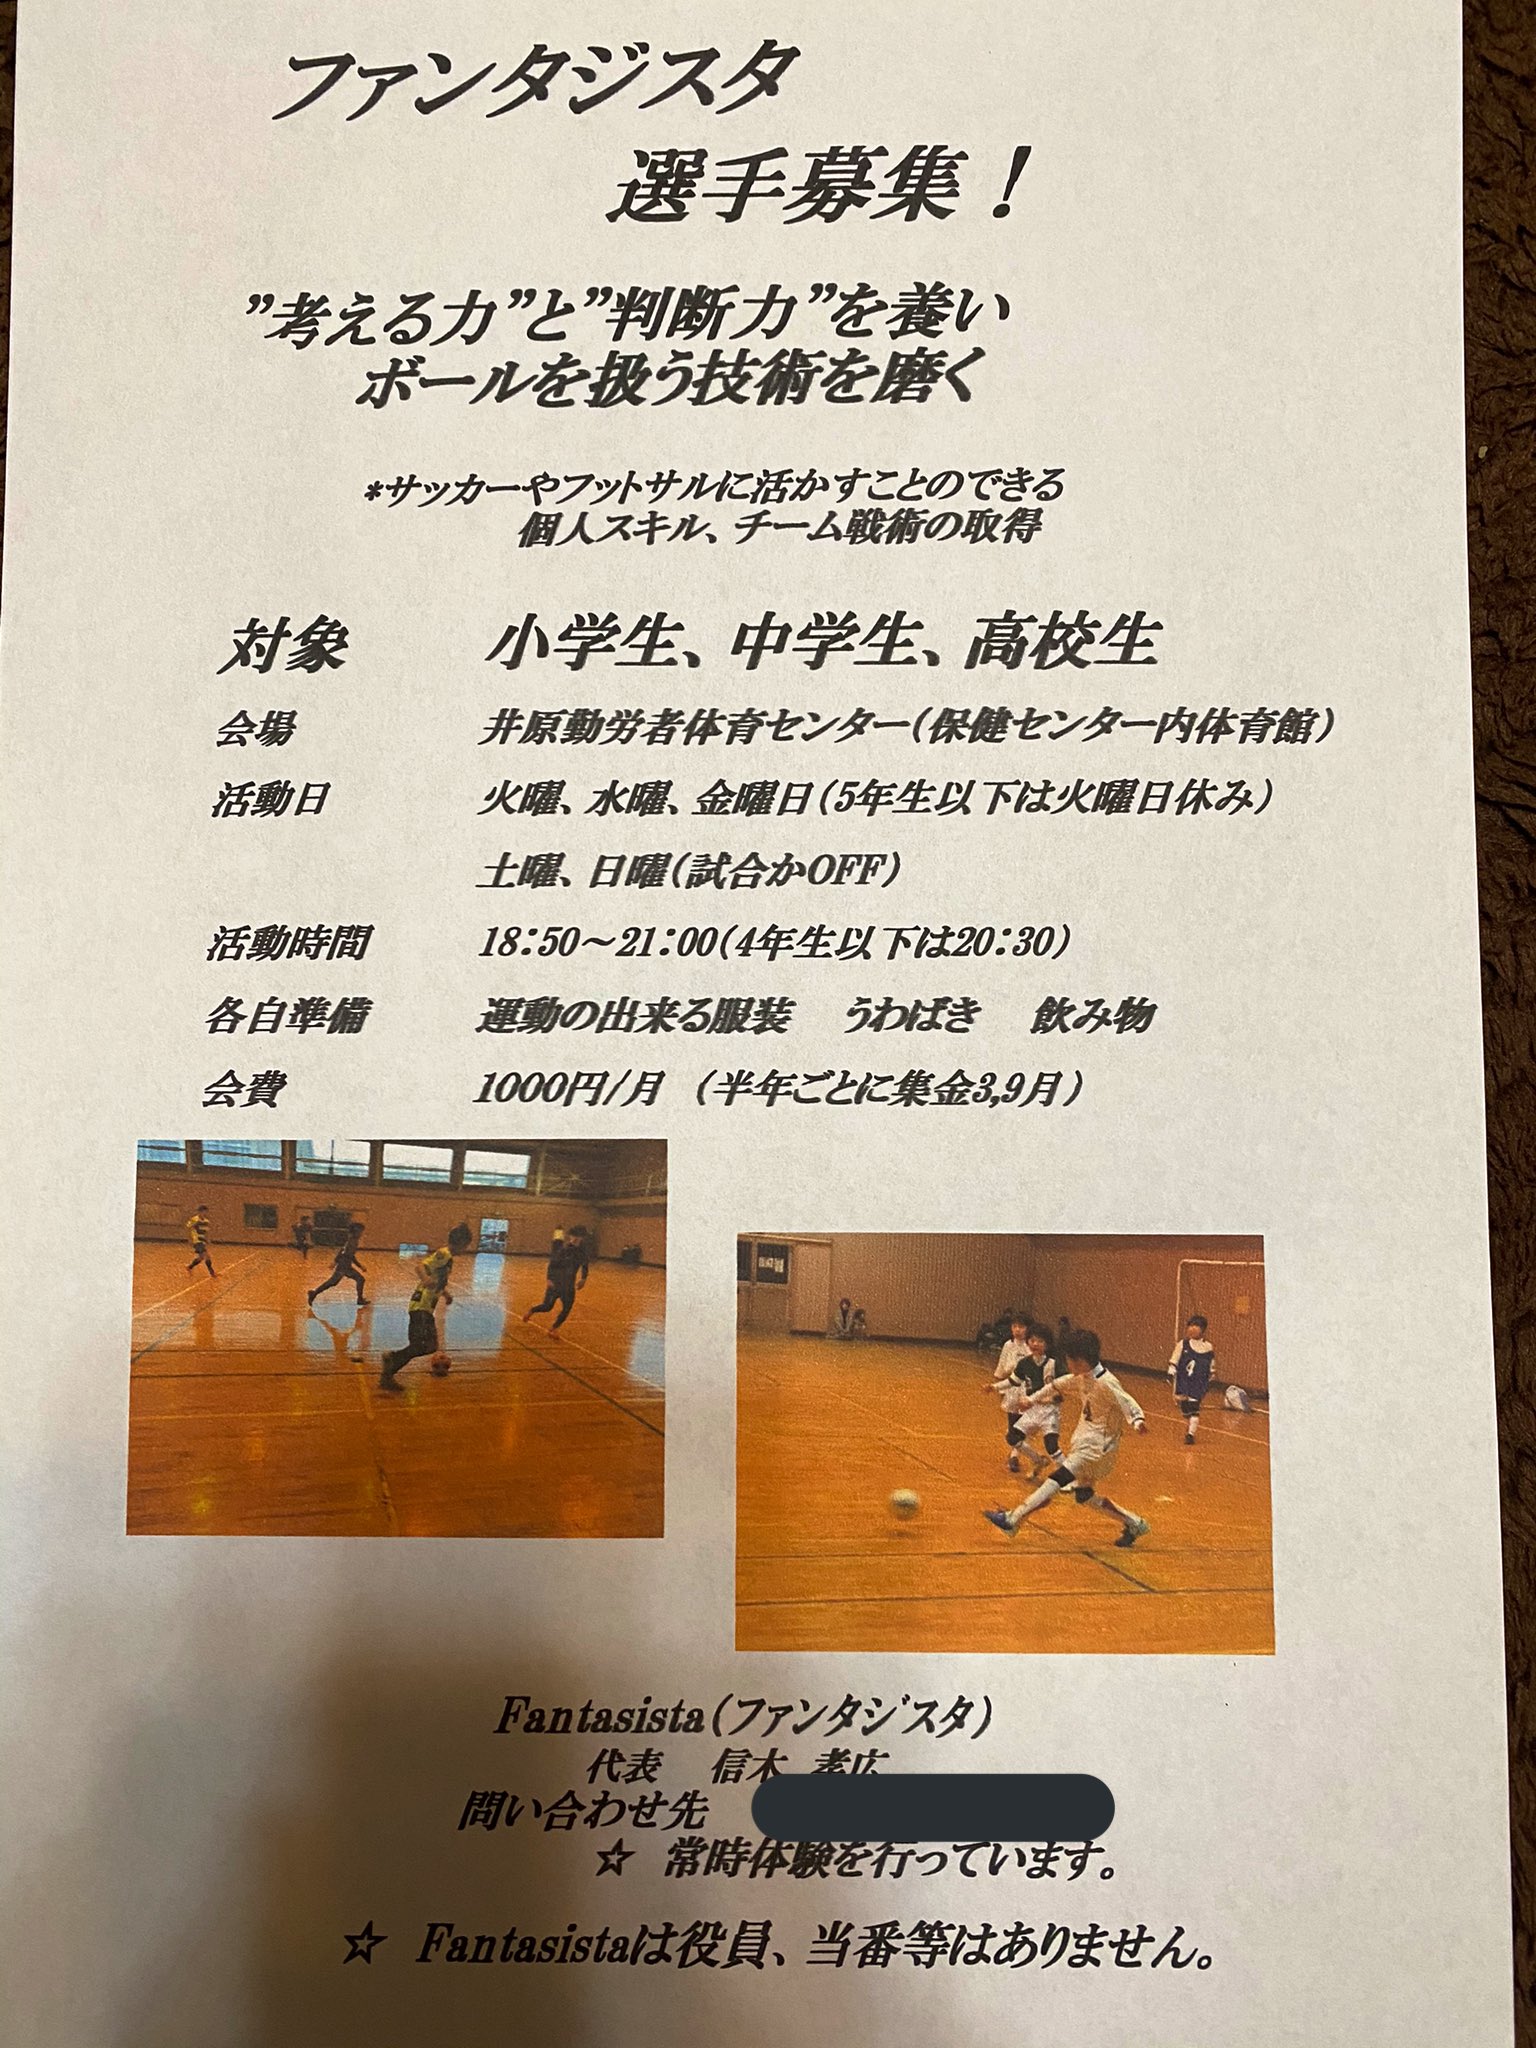 ファンタジスタ
選手募集！
”考える力”と”判断力”を養い
ボールを扱う技術を磨く
*サッカーやフットサルに活かすことのできる
個人スキル、チーム戦術の取得
対象 小学生、中学生、高校生
会場 井原勤労者体育センター（保健センター内体育館）
活動日 火曜、水曜、金曜日（5年生以下は火曜日休み）
土曜、日曜（試合かOFF）
活動時間 18：50～21：00（4年生以下は20：30）
各自準備 運動の出来る服装 うわばき 飲み物
会費 1000円/月 （半年ごとに集金3,9月）
4
4
Fantasista（ファンタジスタ）
代表 信木 孝広
問い合わせ先
☆ 常時体験を行っています。
☆ Fantasistaは役員、当番等はありません。